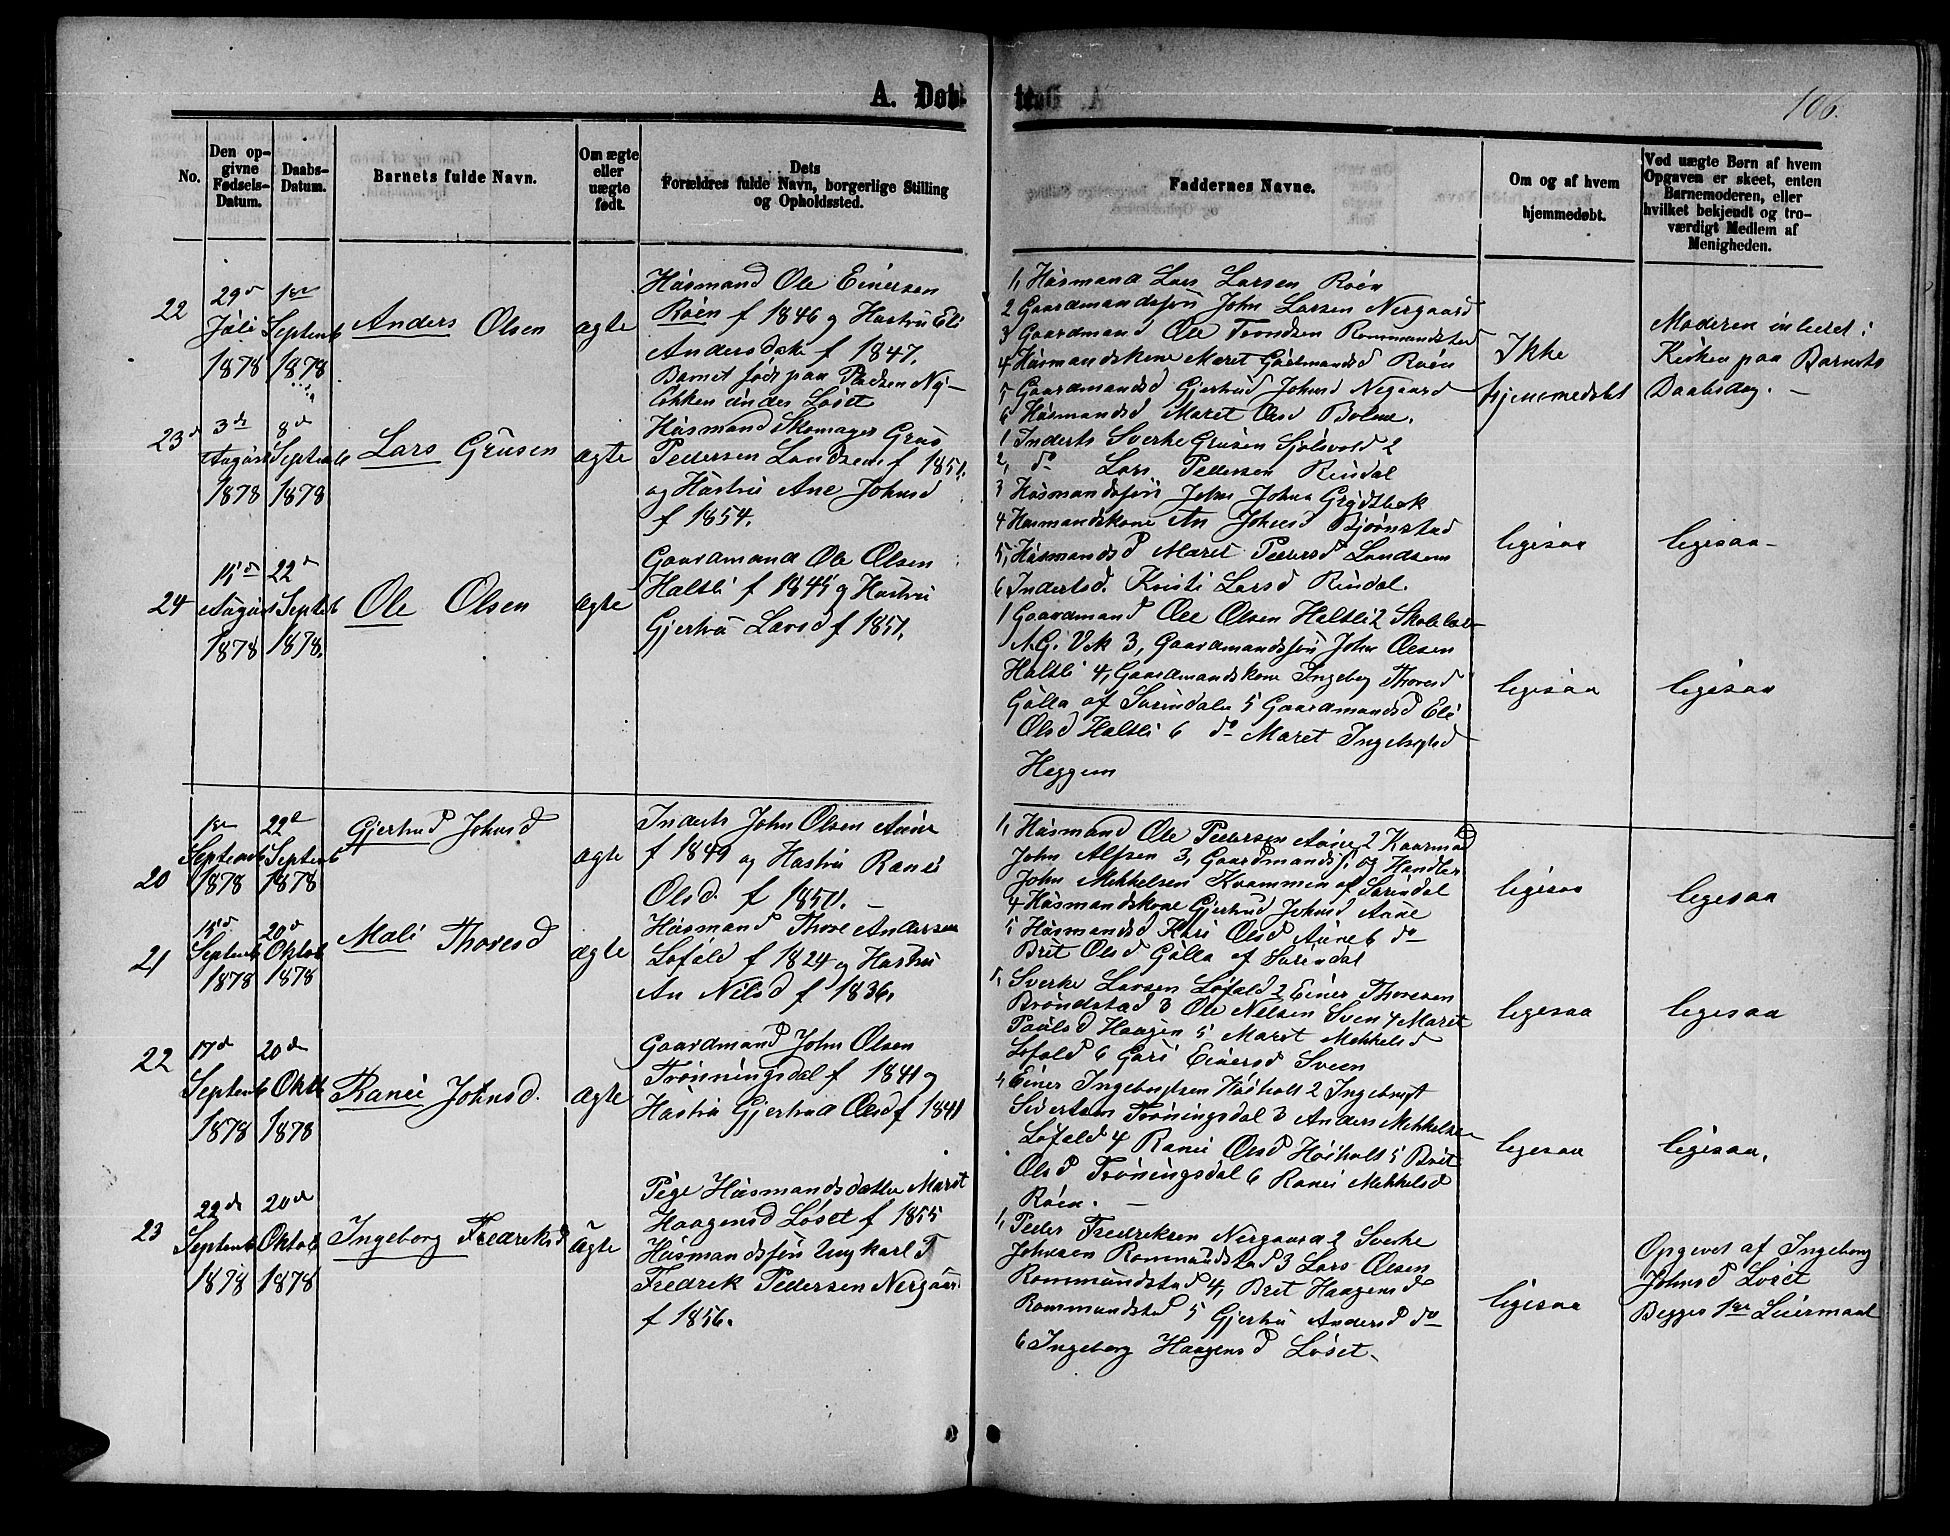 A. Døb-
106.
No.
Den op-
givne
Fødsels-
Datum.
Daabs-
Datum.
Barnets fulde Navn.
Om ægte
eller
uægte
født.
Dets
Forældres fulde Navn, borgerlige Stilling
og Opholdssted.
Faddernes Navne.
Om og af hvem
hjemmedøbt.
Ved uægte Børn af hvem
Opgaven er skeet, enten
Barnemoderen, eller
hvilket bekjendt og tro-
værdigt Medlem af
Menigheden.
22
29d
Juli
1878
1ste
Septemb
1878
Anders Olsen
ægte
Húsmand Ole Einersen
Roen f 1846 og Hústrú Eli
Andersdatr f 1847.
Barnet født paa Pladsen Ny-
løkken únder Løset
1, Húsmand Lars Larsen Roen
2 Gaardmandssøn John Larsen Nergaard
3 Gaardmand Ole Trondsen Rommundstad
4 Húsmandskone Maret Gúdmundsd Roen
5 Gaardmandsd Gjertrud Johnsd Negaard
6 Húsmandsd Maret Olsd Bolme.
Ikke
hjemmedøbt
Moderen inledet i
Kirken paa Barnets
Daabsdag. -
23
3de
Aúgúst
1878
8d
Septemb
1878
Lars Grúsen
ægte
Húsmand Skomager Grús
Pedersen Landsem f 1851.
og Hústrú Ane Johnsd
f 1854.
1 Inderts Sverke Grúsen Sjølsvold 2
2, do Lars Pedersen Rindal
3 Húsmandssøn John Johns Grydtbæk
4 Husmandskone An Johnsd Bjørnstad
5, Húsmandsd Maret Pedersd Landsem
6 Indertsd. Kristi Larsd Rindal.
ligesaa
ligesaa-
24
15d
Aúgúst
1878
22d
Septemb
1878.
Ole Olsen
ægte
Gaardmand Ole Olsen
Haltli f 1845 og Hústrú
Gjertrú Larsd f 1851.
1 Gaardmand Ole Olsen Haltli 2 Skolelær-
N.G. Vek 3, Gaardmandssøn John Olsen
Haltli 4, Gaardmandskone Ingebor Thoresd
Gúlla af Surindalen 5 Gaardmandsd Eli
Olsd Haltli 6 do Maret Ingebrigtsd
Heggem
ligesaa
ligesaa
20
1ste
Septemb
1878
22d
Septemb
1878
Gjertrud Johnsd
ægte
Inderts John Olsen Aúne
f 1849 og Hústrú Ranei
Olsd. f 1857. -
1, Húsmand Ole Pedersen Aúne 2 Kaarmand
John Alfsen 3, Gaardmandsf. og Handler
John Mekkelsen Kvammen af Surindal
4 Húsmandskone Gjertrud Johnsd Aúne
5 Húsmandsd Kari Olsd Aúne 6 do
Brit Olsd Gúlla af Surindal
ligesaa
ligesaa
21
15d
Septemb
1878
20d
Oktob
1878
Mali Thoresd
ægte
Húsmand Thore Andersen
Løfald f 1824 og Hústrú
An Nilsd f 1836.
1, Sverke Larsen Løfald 2 Einer Thoresen
Brøndstad 3 Ole Nelsen Sven 4 Maret
Paúlsd Haagen 5 Maret Mekkelsd
Løfald 6 Gúri Einersd Sveen
ligesaa
ligesaa
22
17d
Septemb
1878
20de
Oktb
1878
Ranei Johnsd.
ægte
Gaardmand John Olsen
Trønningsdal f 1841 og
Hústrú Gjertrud Olsd f 1841
1, Einer Ingebrigtsen Høiholt 2 Ingebrigt
Sivertsen Trøningsdal 3 Anders Mekkelsen
Løfald 4 Ranei Olsd Høiholt 5 Brit
Olsd Trøningsdal 6 Ranei Mekkelsd
Roen. -
ligesaa
ligesaa,
23
22de
Septemb
1878
20de
Oktob
1878
Ingeborg Fredreksd
úægte
Pige Húsmandsdatter Marit
Haagensd Løset f 1855
Húsmandssøn Ungkarl
Fredrik Pedersen Nergaar
f 1856.
1, Peder Fredriksen Nergaard 2 Sverke
Johnsen Rommúndstad 3 Lars Olsen
Rommúndstad 4, Brit Haagensd
Rommundstad 5 Gjertrú Andersd do
6 Ingeborg Haagensd Løset.
ligesaa
Opgivet af Ingeborg
Johnsd Løset
Begges 1ste Leiermaal